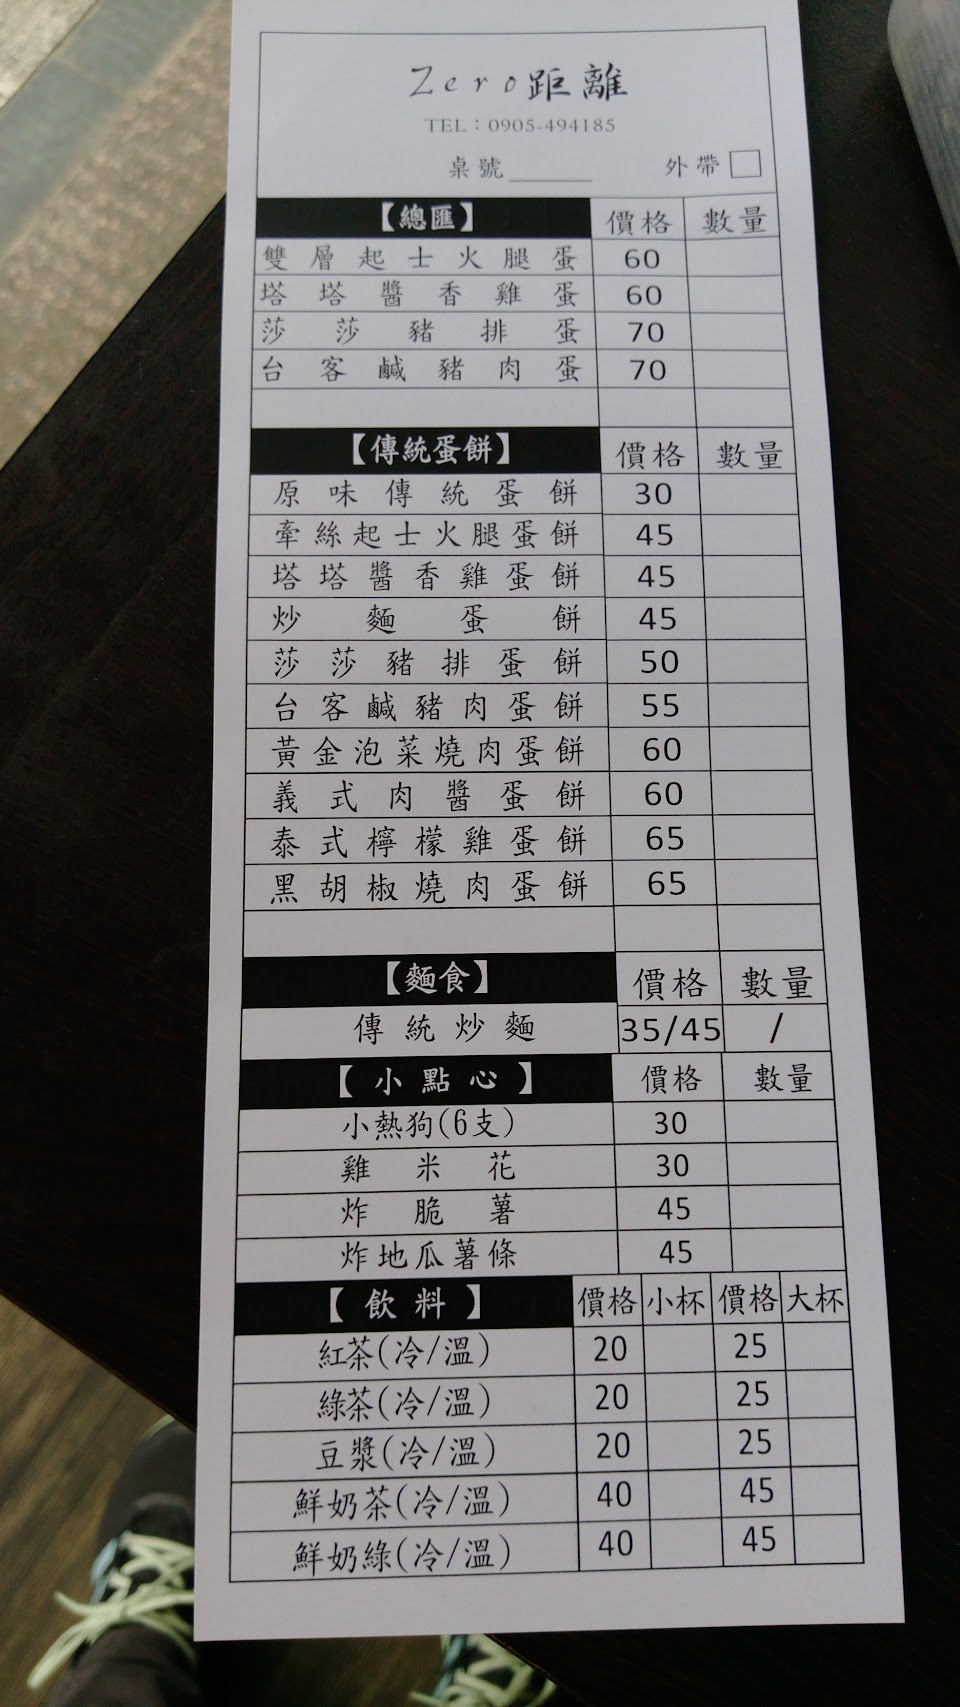 Zero距離
TEL：0905-494185
桌號______ 外帶□
【總匯】 價格 數量
雙層起士火腿蛋 60
塔塔醬香雞蛋 60
莎莎豬排蛋 70
台客鹹豬肉蛋 70
【傳統蛋餅】 價格 數量
原味傳統蛋餅 30
牽絲起士火腿蛋餅 45
塔塔醬香雞蛋餅 45
炒麵蛋餅 45
莎莎豬排蛋餅 50
台客鹹豬肉蛋餅 55
黃金泡菜燒肉蛋餅 60
義式肉醬蛋餅 60
泰式檸檬雞蛋餅 65
黑胡椒燒肉蛋餅 65
【麵食】 價格 數量
傳統炒麵 35/45 /
【小點心】 價格 數量
小熱狗(6支) 30
雞米花 30
炸脆薯 45
炸地瓜薯條 45
【飲料】 價格 小杯 價格 大杯
紅茶(冷/溫) 20 25
綠茶(冷/溫) 20 25
豆漿(冷/溫) 20 25
鮮奶茶(冷/溫) 40 45
鮮奶綠(冷/溫) 40 45